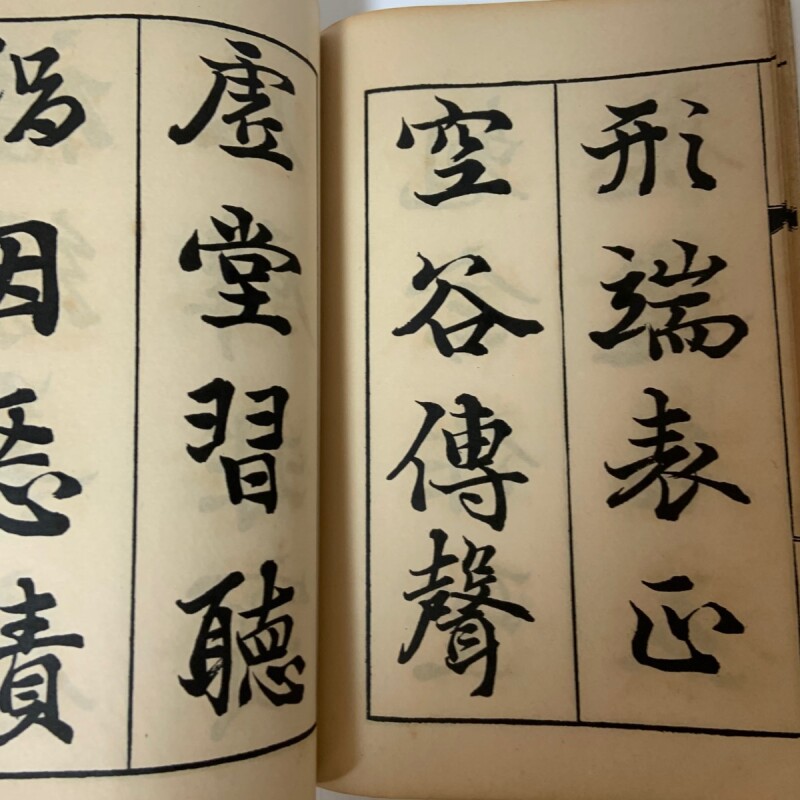 形端表正
空谷傳聲
虚堂習聽
禍因惡積